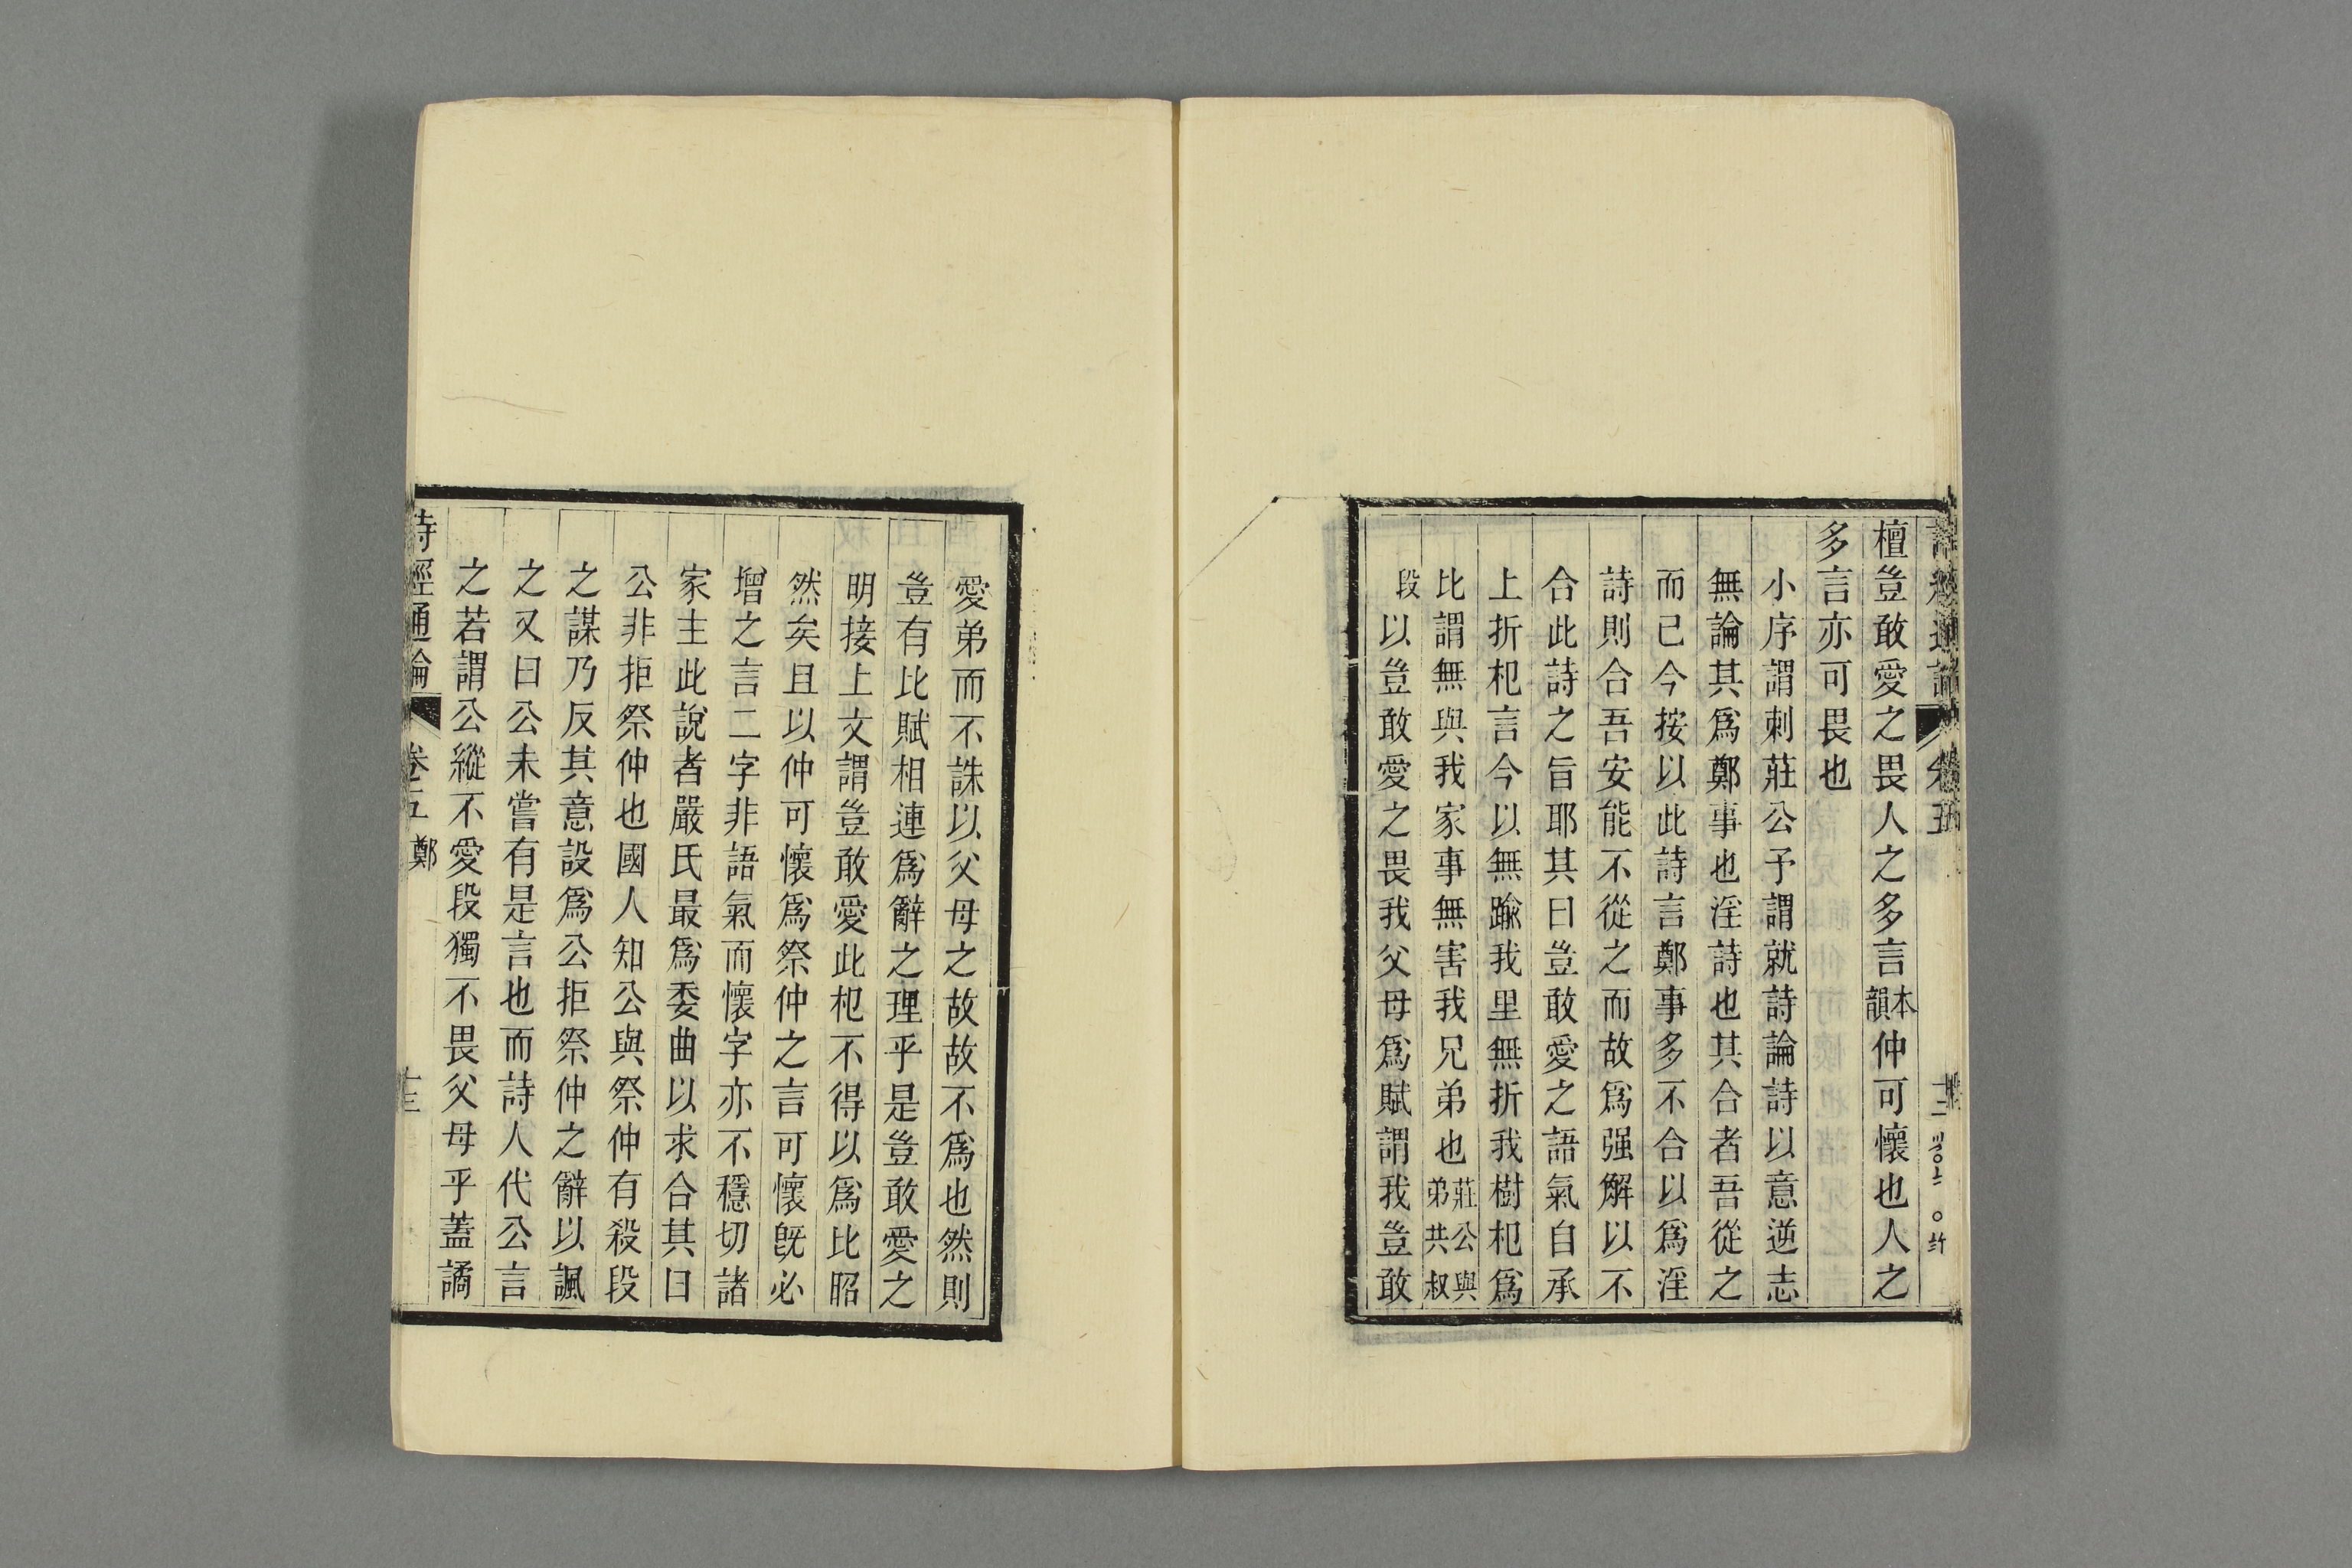 檀豈敢愛之畏人之多言本韻仲可懷也人之
多言亦可畏也
小序謂刺莊公予謂就詩論詩以意逆志
無論其爲鄭事也淫詩也其合者吾從之
而已今按以此詩言鄭事多不合以爲淫
詩則合吾安能不從之而故爲强解以不
合此詩之旨耶其曰豈敢愛之語氣自承
上折杞言今以無踰我里無折我樹杞爲
比謂無與我家事無害我兄弟也莊公與弟共叔
段以豈敢愛之畏我父母爲賦謂我豈敢
愛弟而不誅以父母之故故不爲也然則
豈有比賦相連爲辭之理乎是豈敢愛之
明接上文謂豈敢愛此杞不得以爲比昭
然矣且以仲可懷爲祭仲之言可懷旣必
增之言二字非語氣而懷字亦不穩切諸
家主此說者嚴氏最爲委曲以求合其曰
公非拒祭仲也國人知公與祭仲有殺段
之謀乃反其意設爲公拒祭仲之辭以諷
之又曰公未嘗有是言也而詩人代公言
之若謂公縱不愛段獨不畏父母乎蓋譎
詩經通論 卷五 鄭 十三